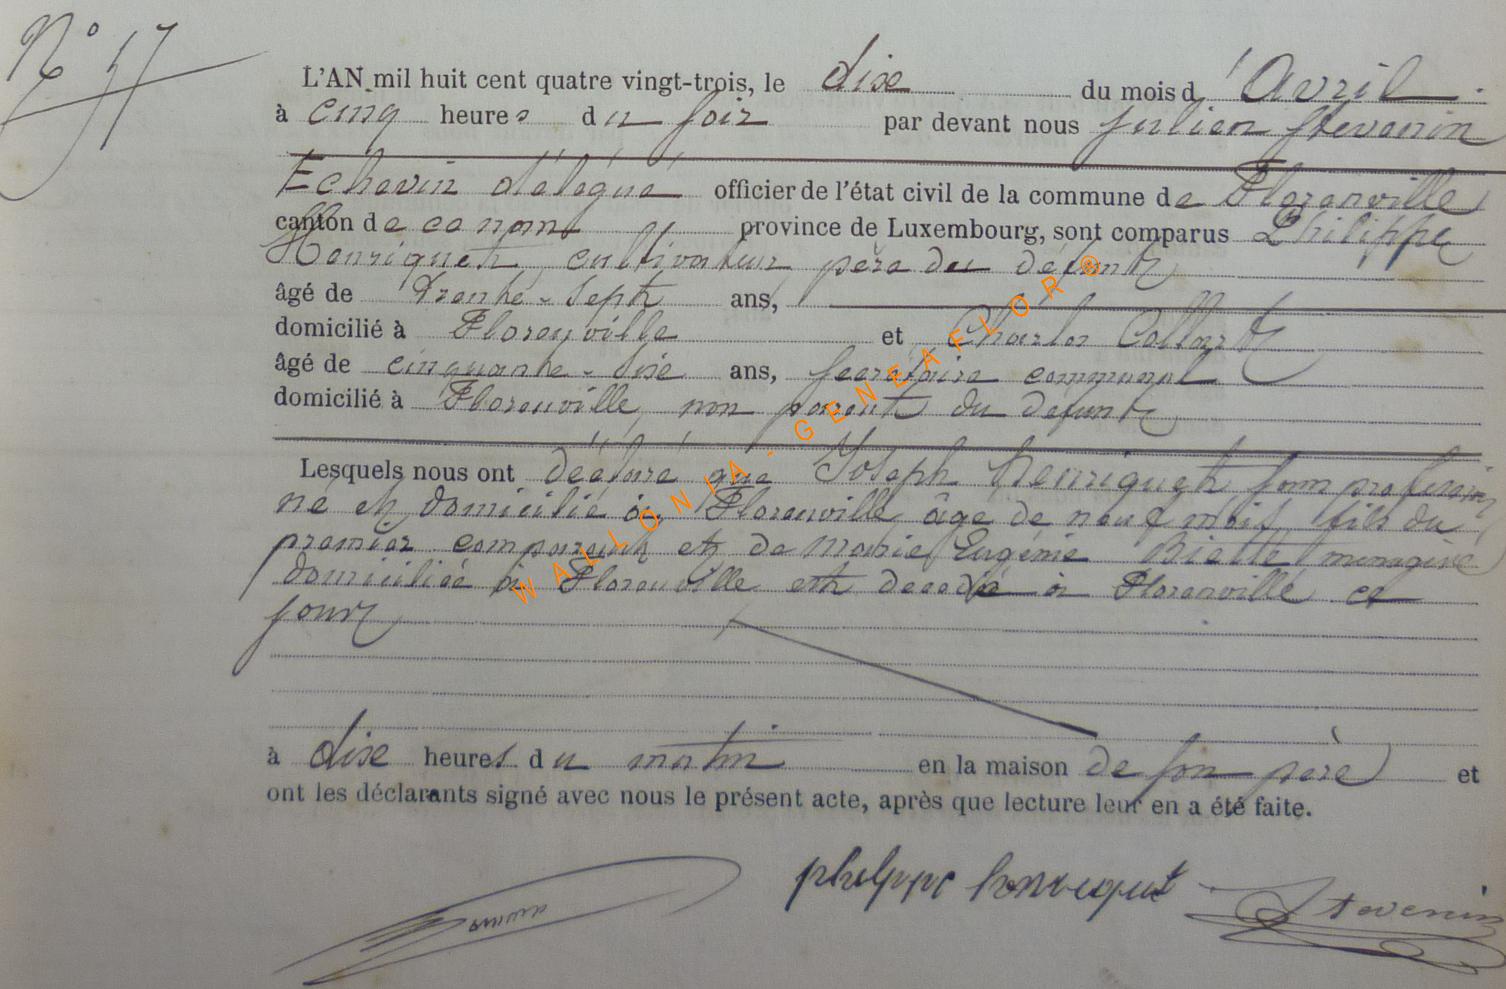 N° 17
L'AN mil huit cent quatre vingt-trois, le dix du mois d'Avril
à cinq heures du soir par devant nous Julien Stevenin
Echevin délégué officier de l'état civil de la commune de Florenville
canton de ce nom province de Luxembourg, sont comparus Philippe
Henriquet, cultivateur père du défunt
âgé de Trente-Sept ans,
domicilié à Florenville et Charles Collart
âgé de cinquante-six ans, secrétaire communal
domicilié à Florenville, non parent du défunt
Lesquels nous ont déclaré que Joseph Henriquet sans profession
né et domicilié à Florenville âgé de neuf mois, fils du
premier comparant et de Marie Eugénie menagère
domiciliée à Florenville est décédé à Florenville ce
jour
à dix heures du matin en la maison de son père et
ont les déclarants signé avec nous le présent acte, après que lecture leur en a été faite.
philippe henriquet Stevenin
WALLONIA - GENEAFLOR ®